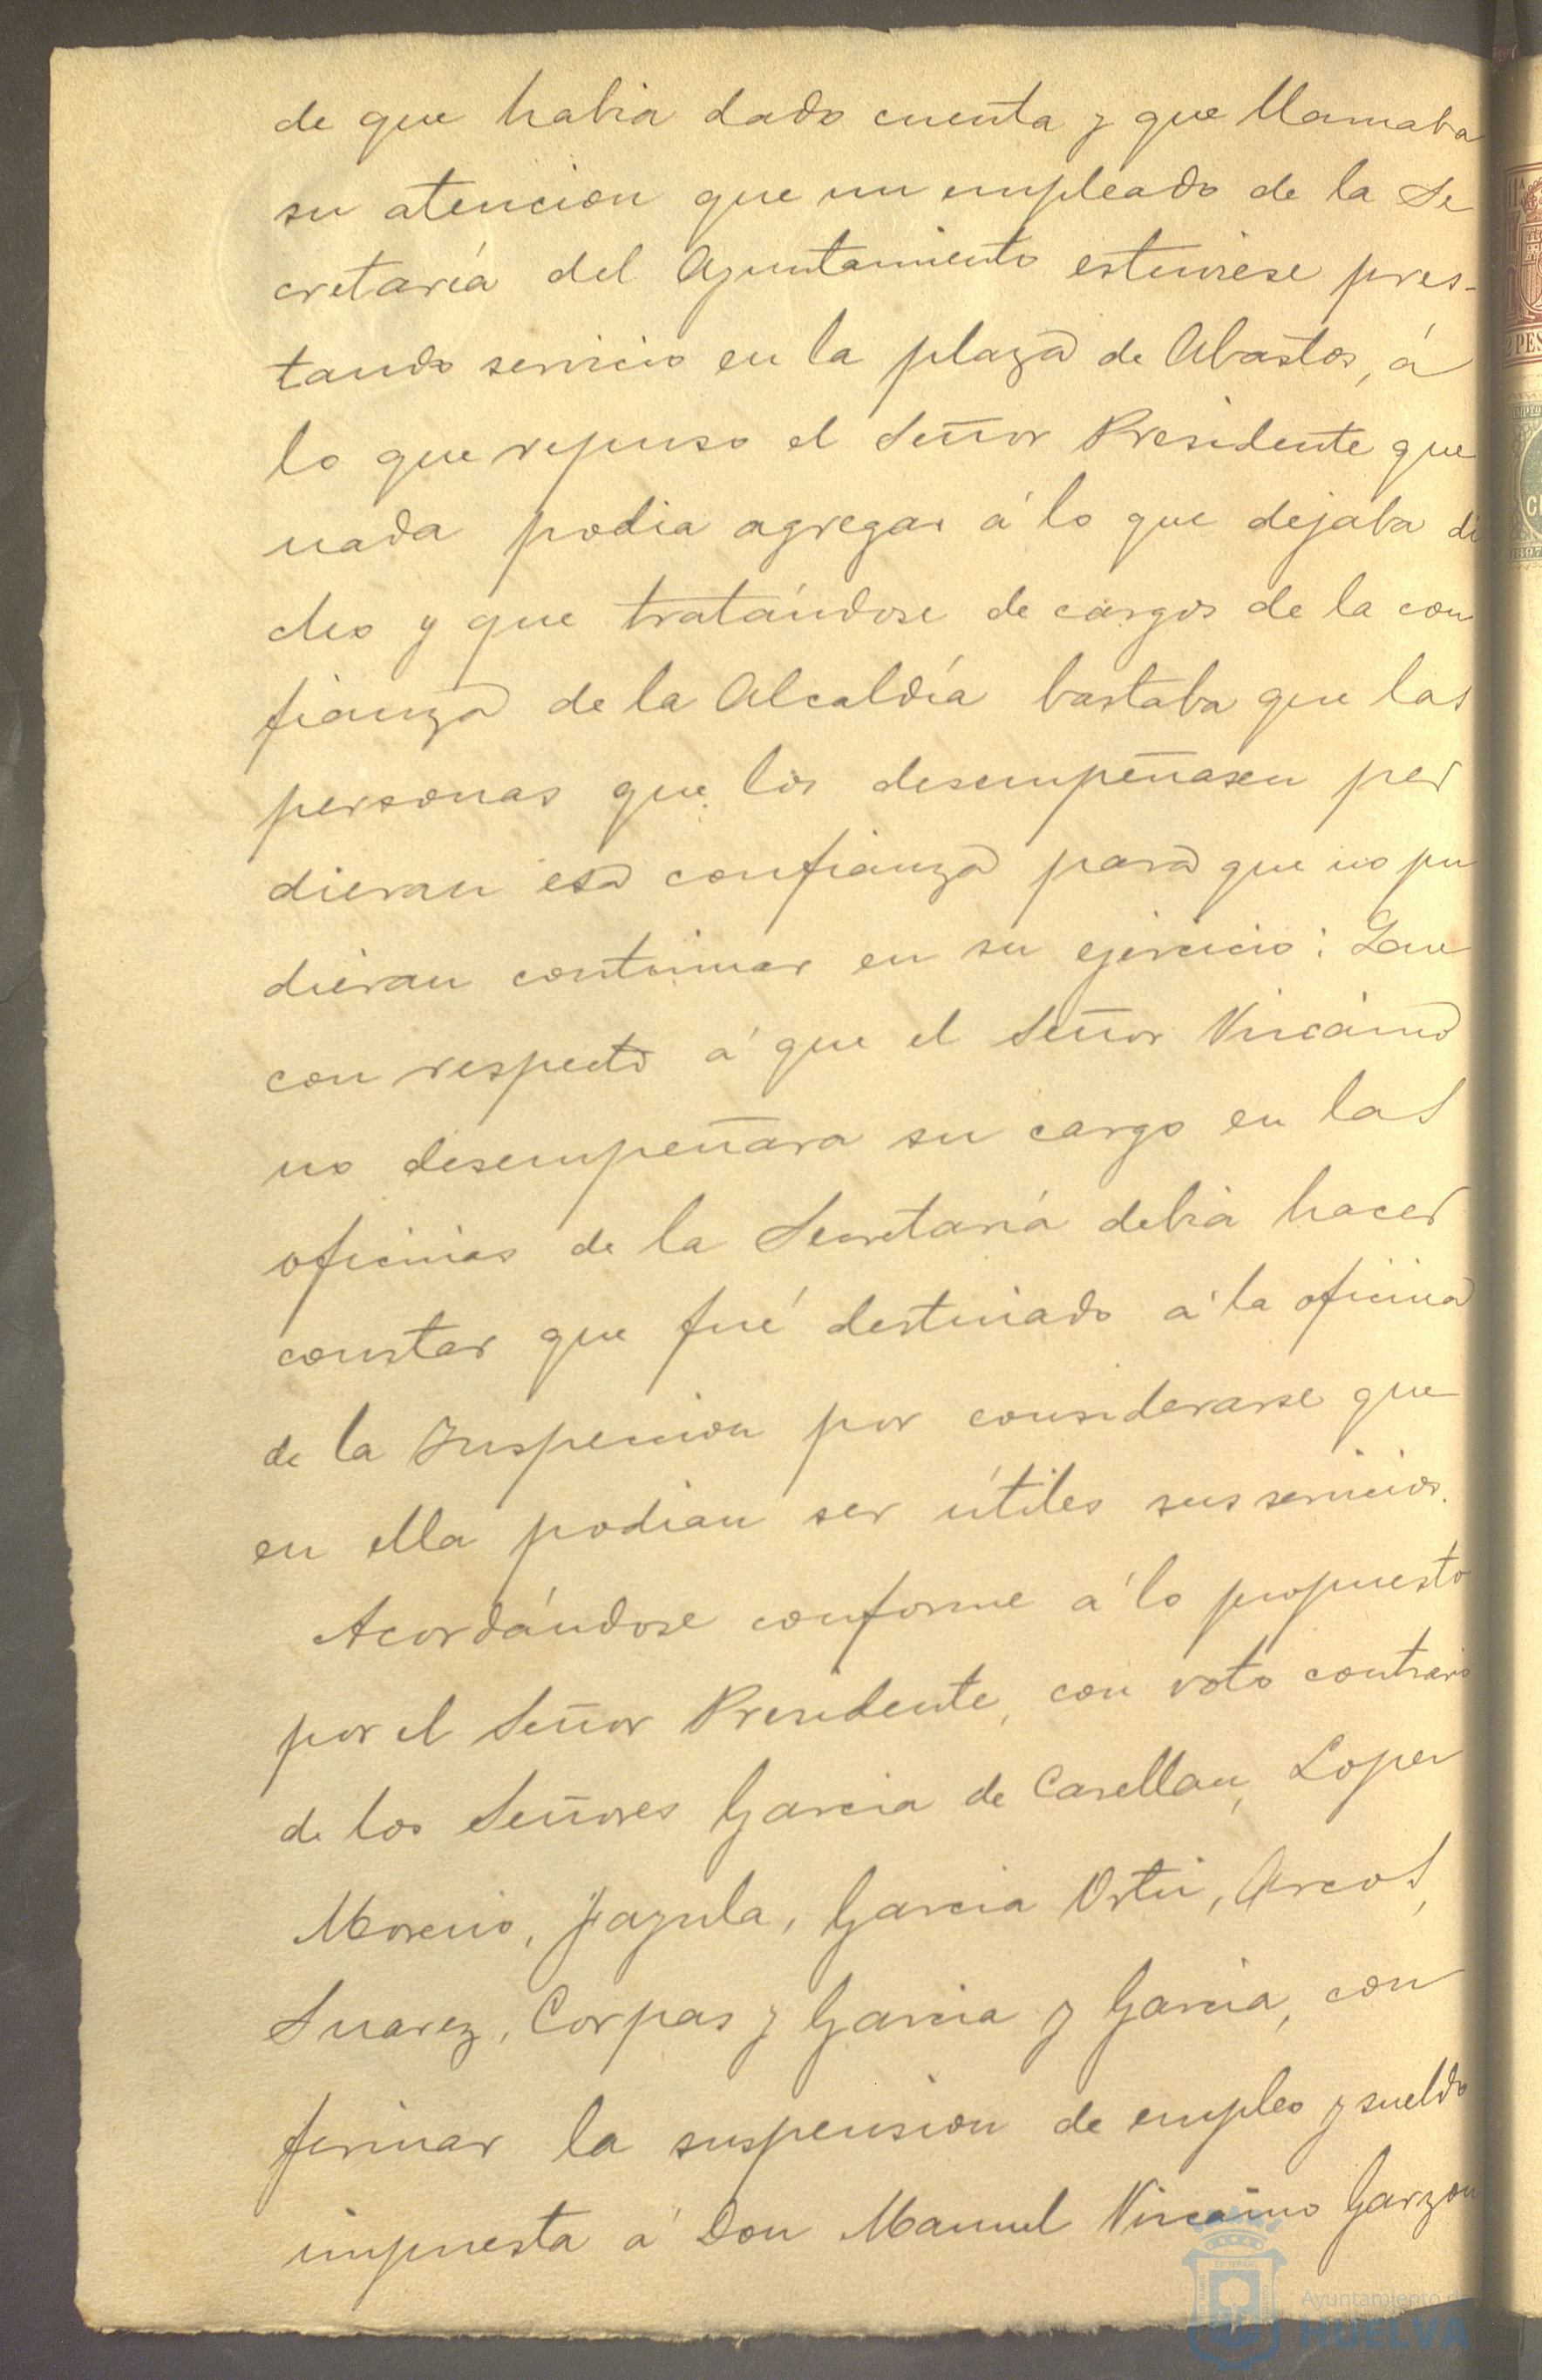 de que habia dado cuenta y que llamaba
su atencion que un empleado de la Se
cretaría del Ayuntamiento estuviese pres-
tando servicio en la plaza de Abastos, á
lo que repuso el Señor Presidente que
nada podia agregar á lo que dejaba di
cho y que tratándose de cargos de la con
fianza de la Alcaldía bastaba que las
personas que los desempeñasen per
dieran esa confianza para que no pu
dieran continuar en su ejercicio: Que
con respecto á que el Señor Viscaino
no desempeñara su cargo en las
oficinas de la Secretaría debia hacer
constar que fué destinado á la oficina
de la Inspeccion por considerarse que
en ella podian ser útiles sus servicios.
Acordándose conforme á lo propuesto
por el Señor Presidente, con voto contrario
de los Señores Garcia de Casellan, Lopez
Moreno, Jazula, Garcia Ortiz, Arcos,
Suarez, Corpas y Garcia y Garcia, con
firmar la suspension de empleo y sueldo
impuesta á Don Manuel Viscaino Garzon
Ayuntamiento de
HUELVA
2 PES
1897